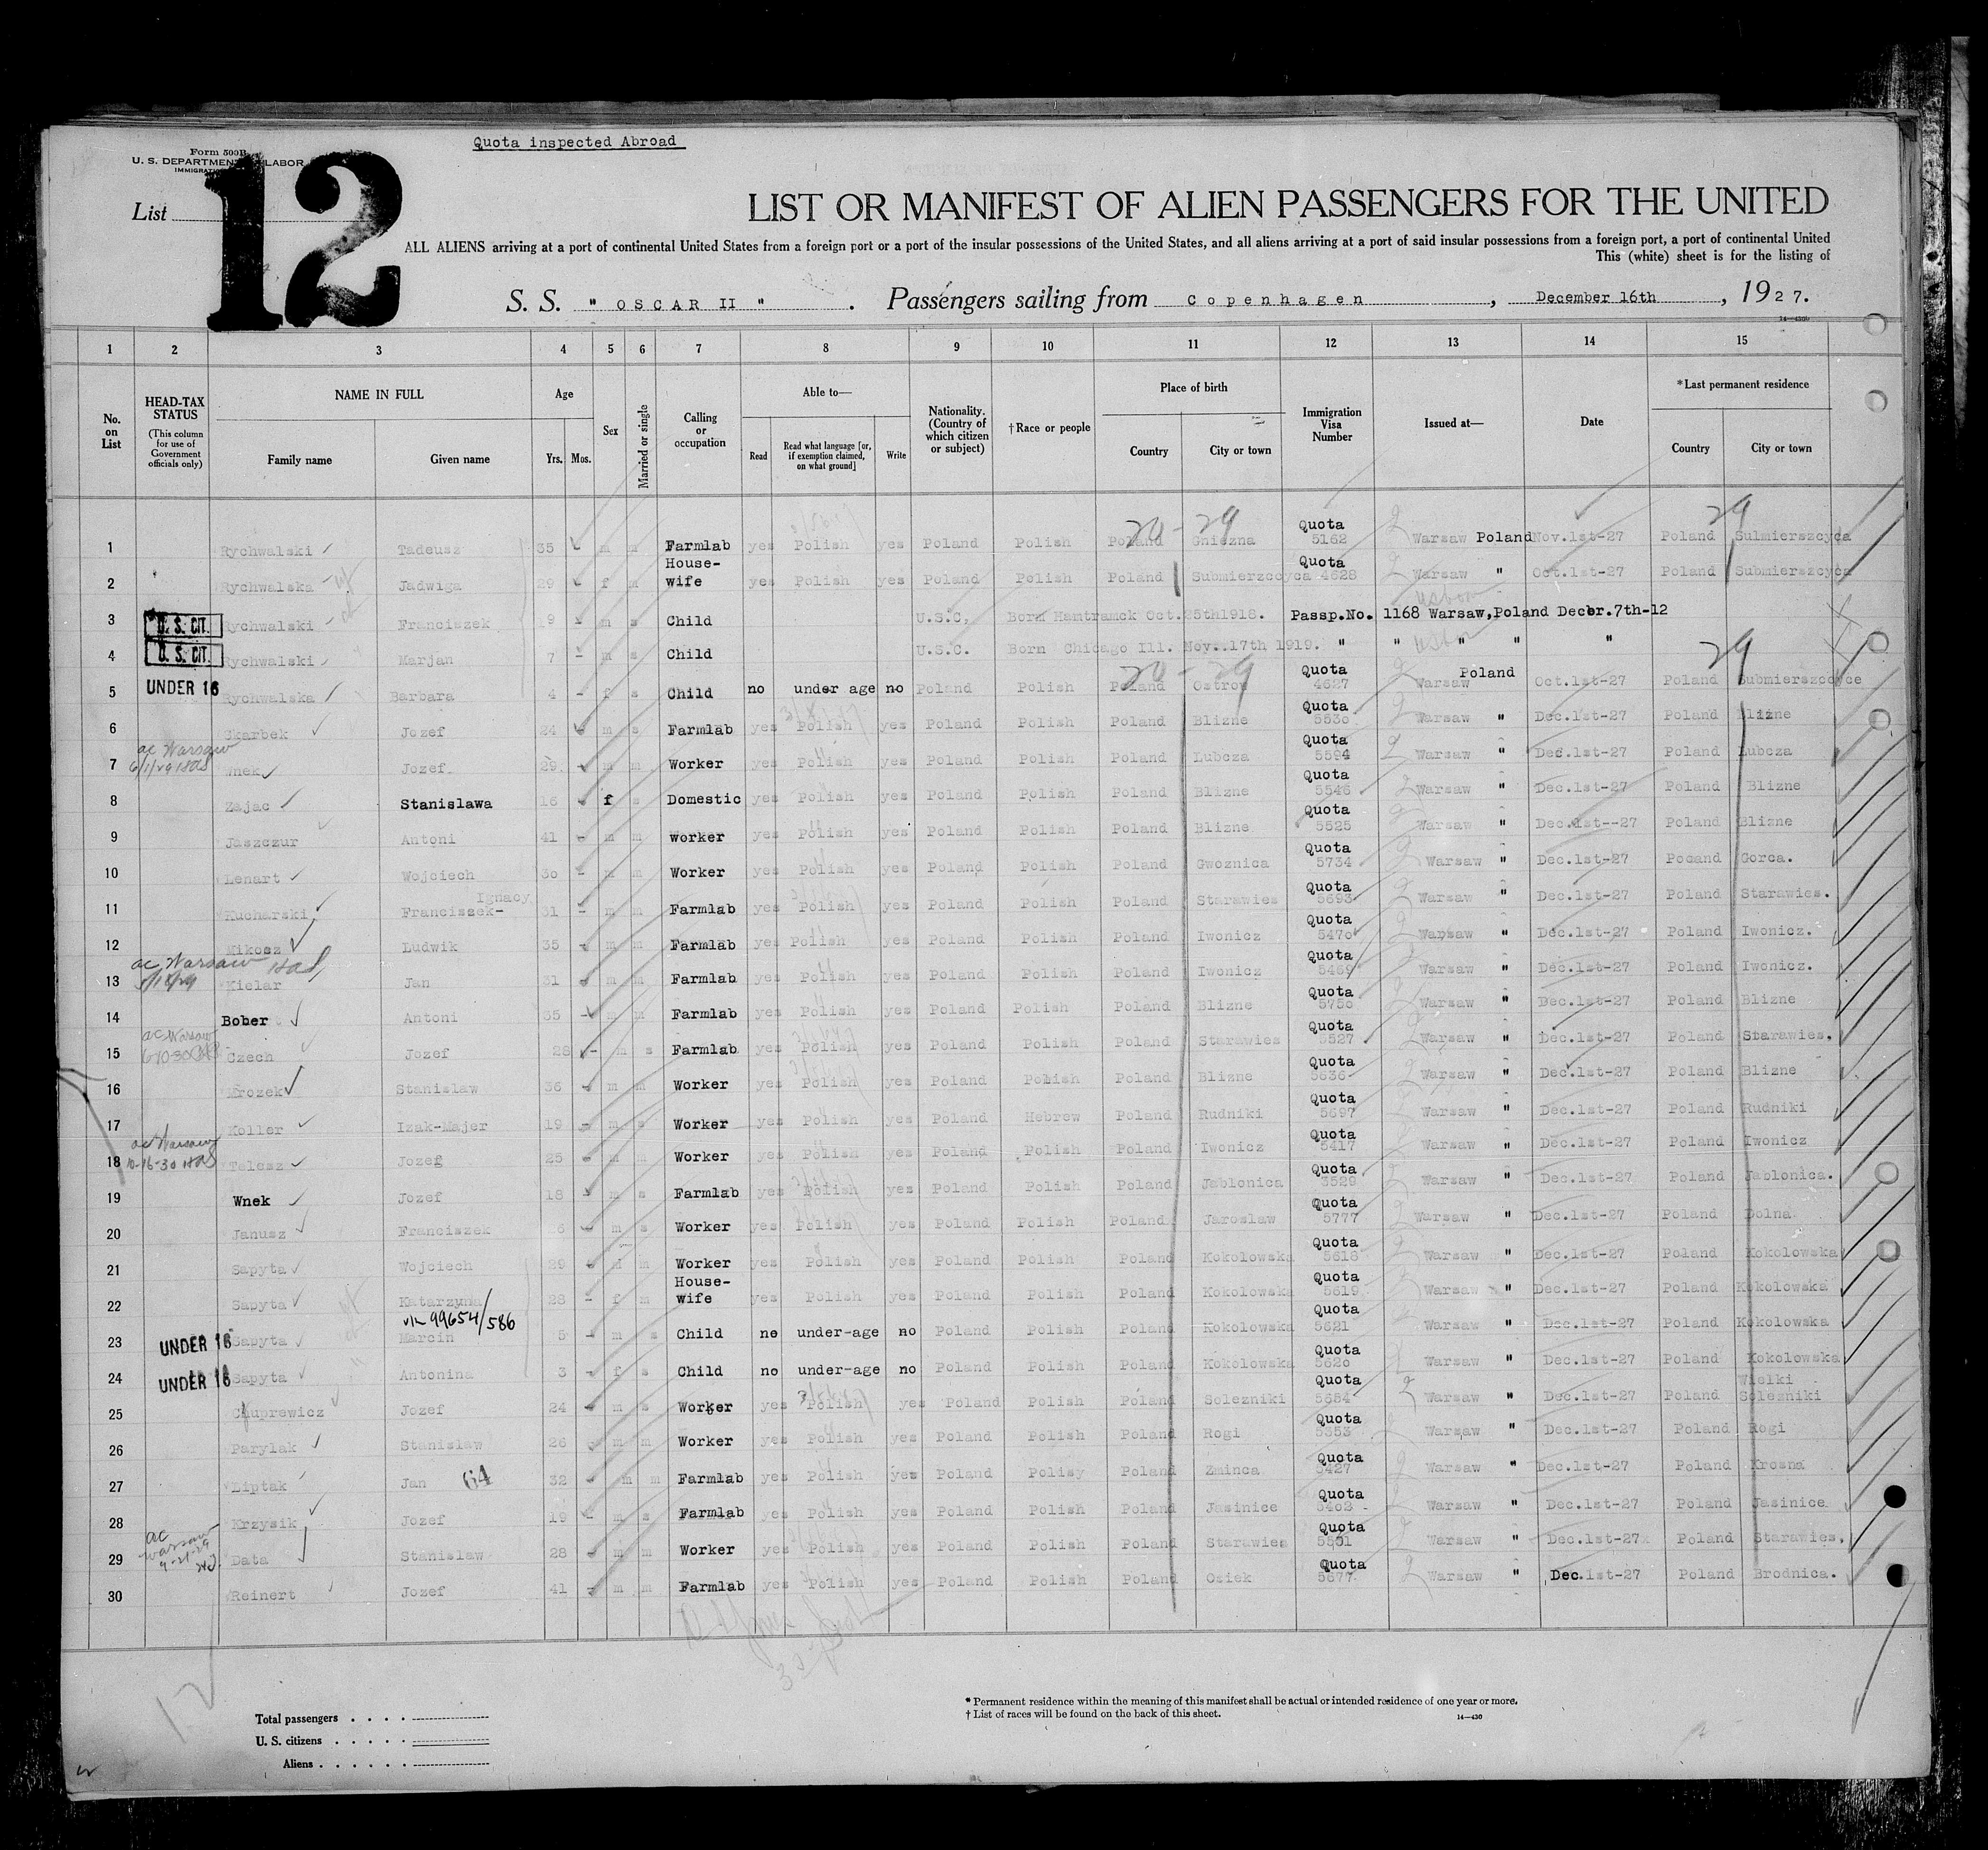 Quota inspected Abroad
Form 500B
U. S. DEPARTMENT LABOR
List
12
LIST OR MANIFEST OF ALIEN PASSENGERS FOR THE UNITED
ALL ALIENS arriving at a port of continental United States from a foreign port or a port of the insular possessions of the United States, and all aliens arriving at a port of said insular possessions from a foreign port, a port of continental United
This (white) sheet is for the listing of
S. S. " OSCAR II " . Passengers sailing from Copenhagen , December 16th , 1927.
1 2 3 4 5 6 7 8 9 10 11 12 13 14 15
No. on List
HEAD-TAX STATUS
(This column for use of Government officials only)
NAME IN FULL
Family name Given name
Age
Yrs. Mos.
Sex
Married or single
Calling or occupation
Able to—
Read Read what language [or, if exemption claimed, on what ground] Write
Nationality. (Country of which citizen or subject)
†Race or people
Place of birth
Country City or town
Immigration Visa Number
Issued at—
Date
*Last permanent residence
Country City or town
1 Rychwalski Tadeusz 35 m m Farmlab yes Polish yes Poland Polish Poland Gniezna Quota 5162 Warsaw Poland Nov.1st-27 Poland Sulmierszcyca
2 Rychwalska Jadwiga 29 f m House-wife yes Polish yes Poland Polish Poland Submierzcoyca Quota 4628 Warsaw " Oct.1st-27 Poland Submierszcyca
3 U. S. CIT. Rychwalski Franciszek 9 - m s Child U.S.C. Born Hamtramck Oct.25th1918. Passp.No. 1168 Warsaw,Poland Decbr.7th-12
4 U. S. CIT. Rychwalski Marjan 7 - m s Child U.S.C. Born Chicago Ill. Nov.17th 1919. " " " " "
5 UNDER 16 Rychwalska Barbara 4 - f s Child no under age no Poland Polish Poland Ostrow Quota 4627 Warsaw Poland Oct.1st-27 Poland Submierszcoyce
6 Skarbek Jozef 24 m s Farmlab yes Polish yes Poland Polish Poland Blizne Quota 5530 Warsaw " Dec.1st-27 Poland Blizne
7 ac Warsaw Wnek Jozef 29 m m Worker yes Polish yes Poland Polish Poland Lubcza Quota 5594 Warsaw " Dec.1st-27 Poland Lubcza
8 Zajac Stanislawa 16 f s Domestic yes Polish yes Poland Polish Poland Blizne Quota 5546 Warsaw " Dec.1st-27 Poland Blizne
9 Jaszczur Antoni 41 - m m worker yes Polish yes Poland Polish Poland Blizne Quota 5525 Warsaw " Dec.1st--27 Poland Blizne
10 Lenart Wojciech 30 - m m Worker yes Polish yes Poland Polish Poland Gwoznica Quota 5734 Warsaw " Dec.1st-27 Pocand Gorca.
11 Kucharski Franciszek- Ignacy 31 - m m Farmlab yes Polish yes Poland Polish Poland Starawies Quota 5693 Warsaw " Dec.1st-27 Poland Starawies.
12 Mikosz Ludwik 35 m m Farmlab yes Polish yes Poland Polish Poland Iwonicz Quota 5470 Warsaw " Dec.1st-27 Poland Iwonicz.
13 ac Warsaw Kielar Jan 31 m m Farmlab yes Polish yes Poland Polish Poland Iwonicz Quota 5469 Warsaw " Dec.1st-27 Poland Iwonicz.
14 Bober Antoni 35 m m Farmlab yes Polish yes Poland Polish Poland Blizne Quota 5750 Warsaw " Dec.1st-27 Poland Blizne
15 ac Warsaw Czech Jozef 28 - m s Farmlab yes Polish yes Poland Polish Poland Starawies Quota 5527 Warsaw " Dec.1st-27 Poland Starawies.
16 Mrozek Stanislaw 36 m m Worker yes Polish yes Poland Polish Poland Blizne Quota 5636 Warsaw " Dec.1st-27 Poland Blizne
17 Koller Izak-Majer 19 m s Worker yes Polish yes Poland Hebrew Poland Rudniki Quota 5697 Warsaw " Dec.1st-27 Poland Rudniki
18 ac Warsaw 10-16-30 Telesz Jozef 25 m m Worker yes Polish yes Poland Polish Poland Iwonicz Quota 5417 Warsaw " Dec.1st-27 Poland Iwonicz
19 Wnek Jozef 18 m s Farmlab yes Polish yes Poland Polish Poland Jablonica Quota 3529 Warsaw " Dec.1st-27 Poland Jablonica.
20 Janusz Franciszek 6 m s Worker yes Polish yes Poland Polish Poland Jaroslaw Quota 5777 Warsaw " Dec.1st-27 Poland Dolna
21 Sapyta Wojciech 29 m m Worker yes Polish yes Poland Polish Poland Kokolowska Quota 5618 Warsaw " Dec.1st-27 Poland Kokolowska
22 Sapyta Katarzyna 28 - f m House-wife yes Polish yes Poland Polish Poland Kokolowska Quota 5619 Warsaw " Dec.1st-27 Poland Kokolowska
99654/586
23 UNDER 16 Sapyta Marcin 5 - m s Child no under-age no Poland Polish Poland Kokolowska Quota 5621 Warsaw " Dec.1st-27 Poland Kokolowska
24 UNDER 16 Sapyta Antonina 3 - f s Child no under-age no Poland Polish Poland Kokolowska Quota 5620 Warsaw " Dec.1st-27 Poland Kokolowska
25 Chuprewicz Jozef 24 m s Worker yes Polish yes Poland Polish Poland Solezniki Quota 5654 Warsaw " Dec.1st-27 Poland Wielki Solezniki
26 Parylak Stanislaw 26 m m Worker yes Polish yes Poland Polish Poland Rogi Quota 5353 Warsaw " Dec.1st-27 Poland Rogi
27 Liptak Jan 64 32 m m Farmlab yes Polish yes Poland Polisy Poland Zminca Quota 5427 Warsaw " Dec.1st-27 Poland Krosna
28 Krzysik Jozef 19 m s Farmlab yes Polish yes Poland Polish Poland Jasinice Quota 5402 Warsaw " Dec.1st-27 Poland Jasinice
29 ac warsaw 9-21-29 Data Stanislaw 28 m m Worker yes Polish yes Poland Polish Poland Starawies Quota 5501 Warsaw " Dec.1st-27x Poland Starawies.
30 Reinert Jozef 41 m m Farmlab yes Polish yes Poland Polish Poland Osiek Quota 5677 Warsaw " Dec.1st-27 Poland Brodnica.
12
* Permanent residence within the meaning of this manifest shall be actual or intended residence of one year or more.
† List of races will be found on the back of this sheet.
14—430
Total passengers . . . .
U. S. citizens . . . . .
Aliens . . . . . .